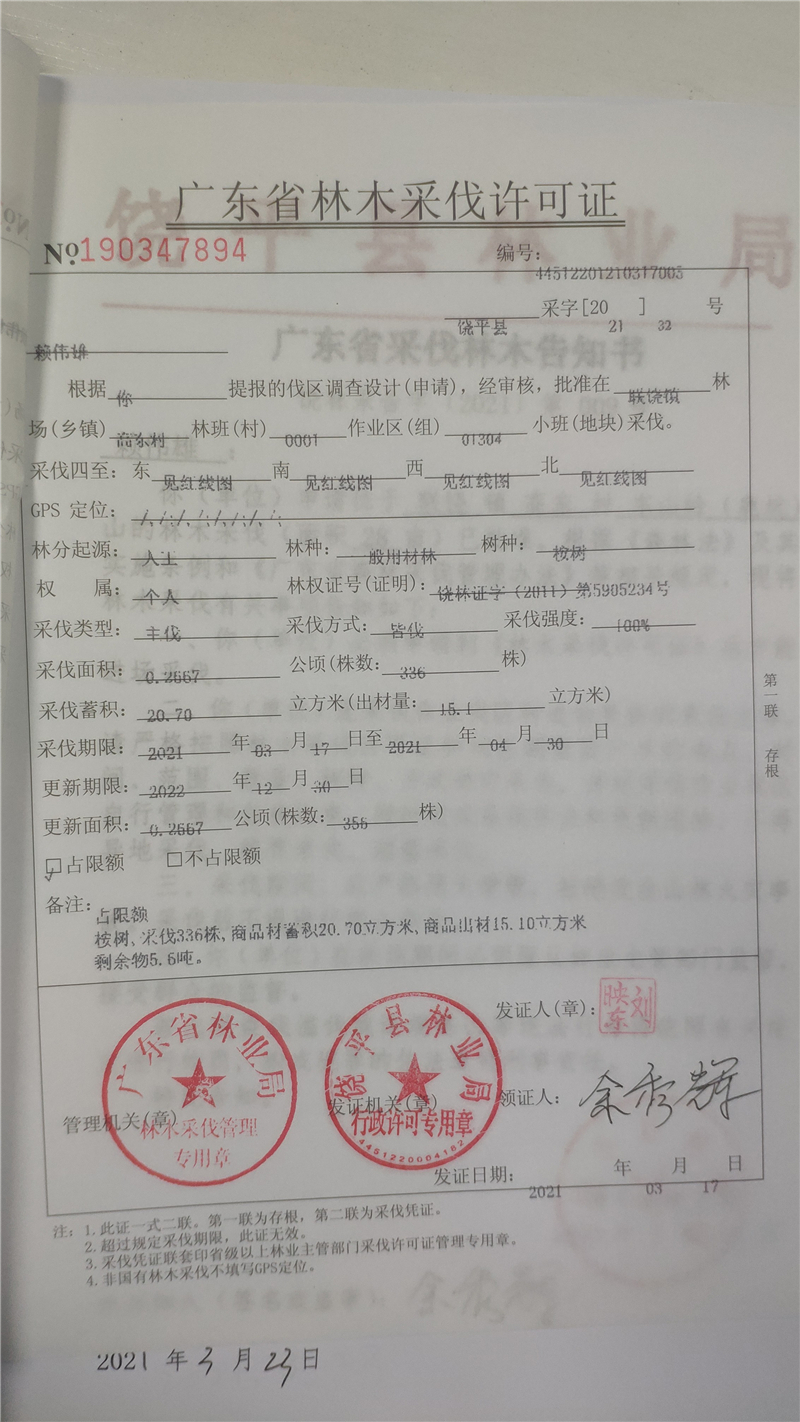 广东省林木采伐许可证
№190347894 编号：44512201210317005
饶平县 采字[20 21 ] 32 号
赖伟雄
根据 你 提报的伐区调查设计(申请)，经审核，批准在 联饶镇 林
场(乡镇) 南东村 林班(村) 0001 作业区(组) 01304 小班(地块)采伐。
采伐四至：东 见红线图 南 见红线图 西 见红线图 北 见红线图
GPS 定位： /./;/./;/./;/./;
林分起源： 人工 林种： 一般用材林 树种： 桉树
权 属： 个人 林权证号(证明)： 饶林证字（2011）第5905234号
采伐类型： 主伐 采伐方式： 皆伐 采伐强度： 100%
采伐面积： 0.2667 公顷(株数： 336 株)
采伐蓄积： 20.70 立方米(出材量： 15.1 立方米)
采伐期限： 2021 年 03 月 17 日至 2021 年 04 月 30 日
更新期限： 2022 年 12 月 30 日
更新面积： 0.2667 公顷(株数： 356 株)
☑占限额 □不占限额
备注：占限额
桉树、采伐336株，商品材蓄积20.70立方米，商品出材15.10立方米
剩余物5.6吨。
第一联 存根
广东省林业局
林木采伐管理
专用章
管理机关(章)
饶平县林业局
行政许可专用章
4451220004182
发证机关(章)
发证人(章)：
刘映东
领证人： 余秀辉
发证日期： 2021 年 03 月 17 日
注：1.此证一式二联。第一联为存根，第二联为采伐凭证。
2.超过规定采伐期限，此证无效。
3.采伐凭证联套印省级以上林业主管部门采伐许可证管理专用章。
4.非国有林木采伐不填写GPS定位。
2021 年 3 月 23 日